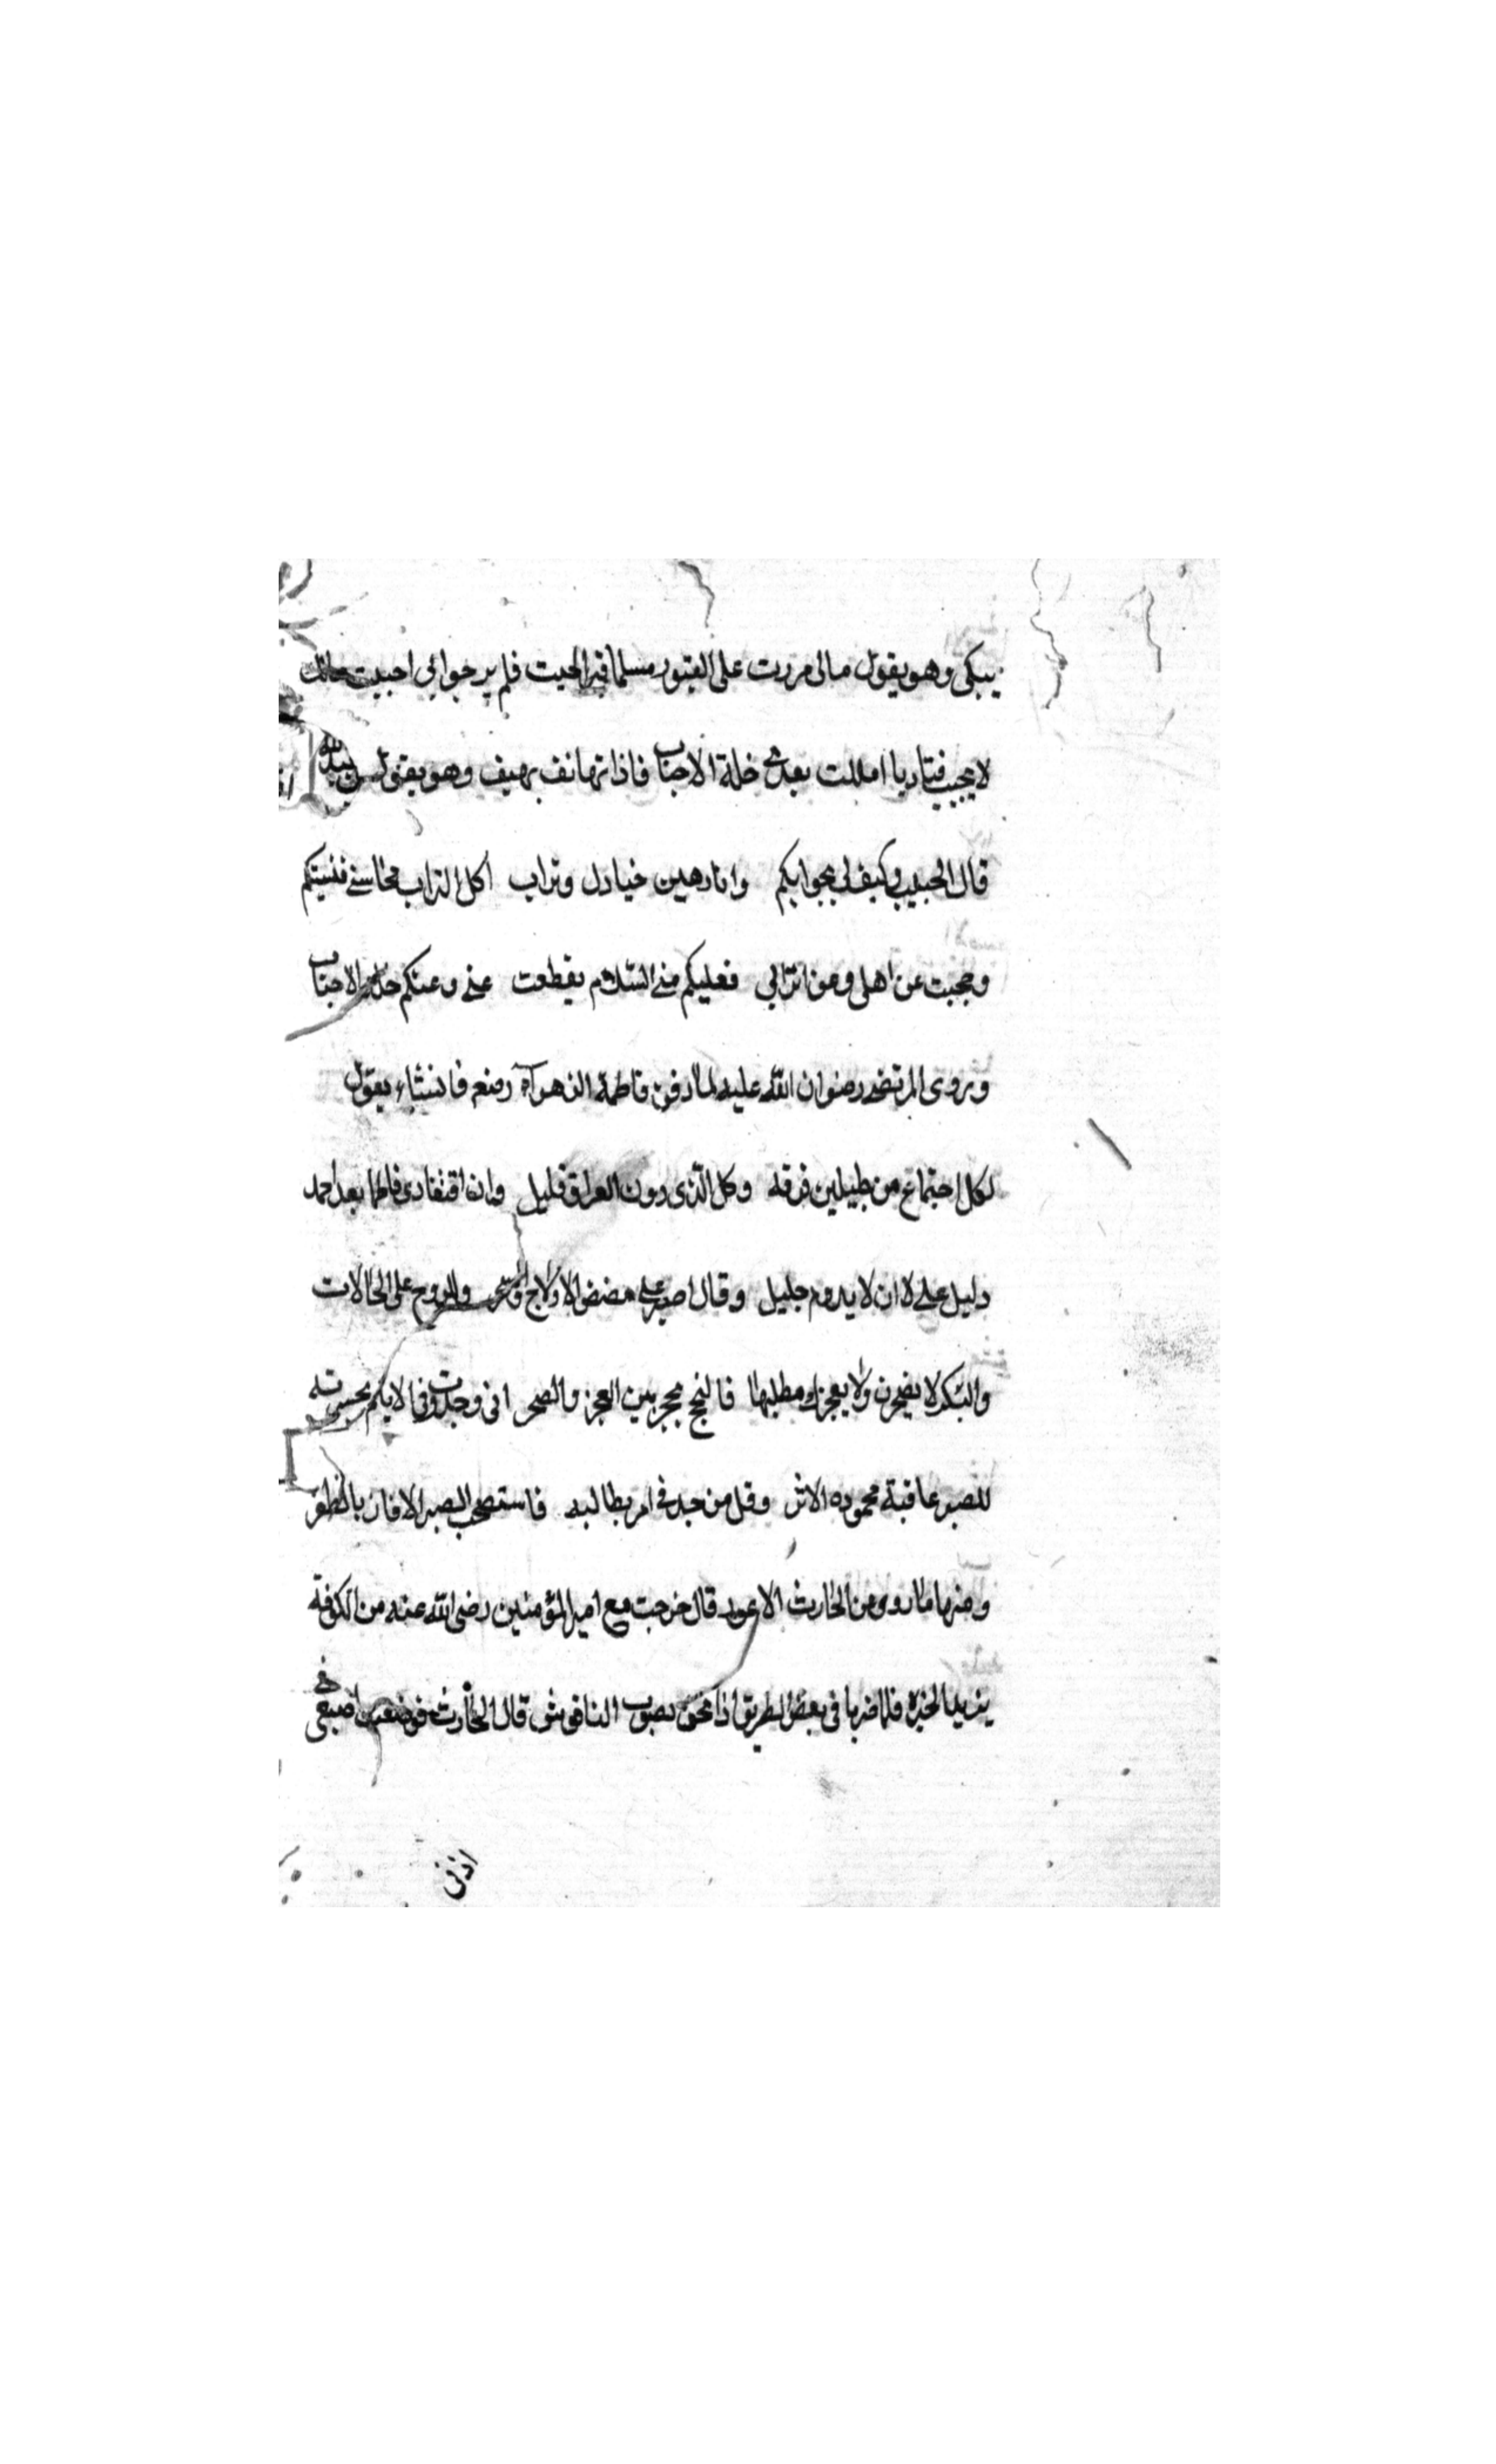 يبكى وهو يقول مالى مررت على القبور مسلما قبر الحبيب فلم يرد جوابى احبيب مالك
لا تجيب مناديا امللت بعدى خلة الاحباب فاذا بهاتف يهتف وهو يقول
قال الحبيب وكيف لى بجوابكم وانا رهين جنادل وتراب اكل التراب محاسنى فنسيتكم
وحجبت عن اهلى وعن اترابى فعليكم منى السلام تقطعت عنى وعنكم خلة الاحباب
وروى المرتضى رضوان الله عليه لما دفن فاطمة الزهراء رضعم فانشاء يقول
لكل اجتماع من خليلين فرقه وكل الذى دون الفراق قليل وان افتقادى فاطما بعد احمد
دليل على لا ان لا يدوم خليل وقال اصبر على مضض الادلاج والسحر والروح على الحالات
والبكر لا تضجرن ولا يعجزك مطلبها فالنجح بين العجز والضجر انى وجدت وفى الايام تجربته
للصبر عاقبة محموده الاثر وقل من جد فى امر يطالبه فاستصحب الصبر الا فاز بالظفر
ومنها ما روى من الحارث الاعور قال خرجت مع امير المؤمنين رضى الله عنه من الكوفة
يريد الحيرة فلما ضربا فى بعض الطريق اذا نحن بصوت الناقوس قال الحارث فوضعت اصبعى فى
اذنى